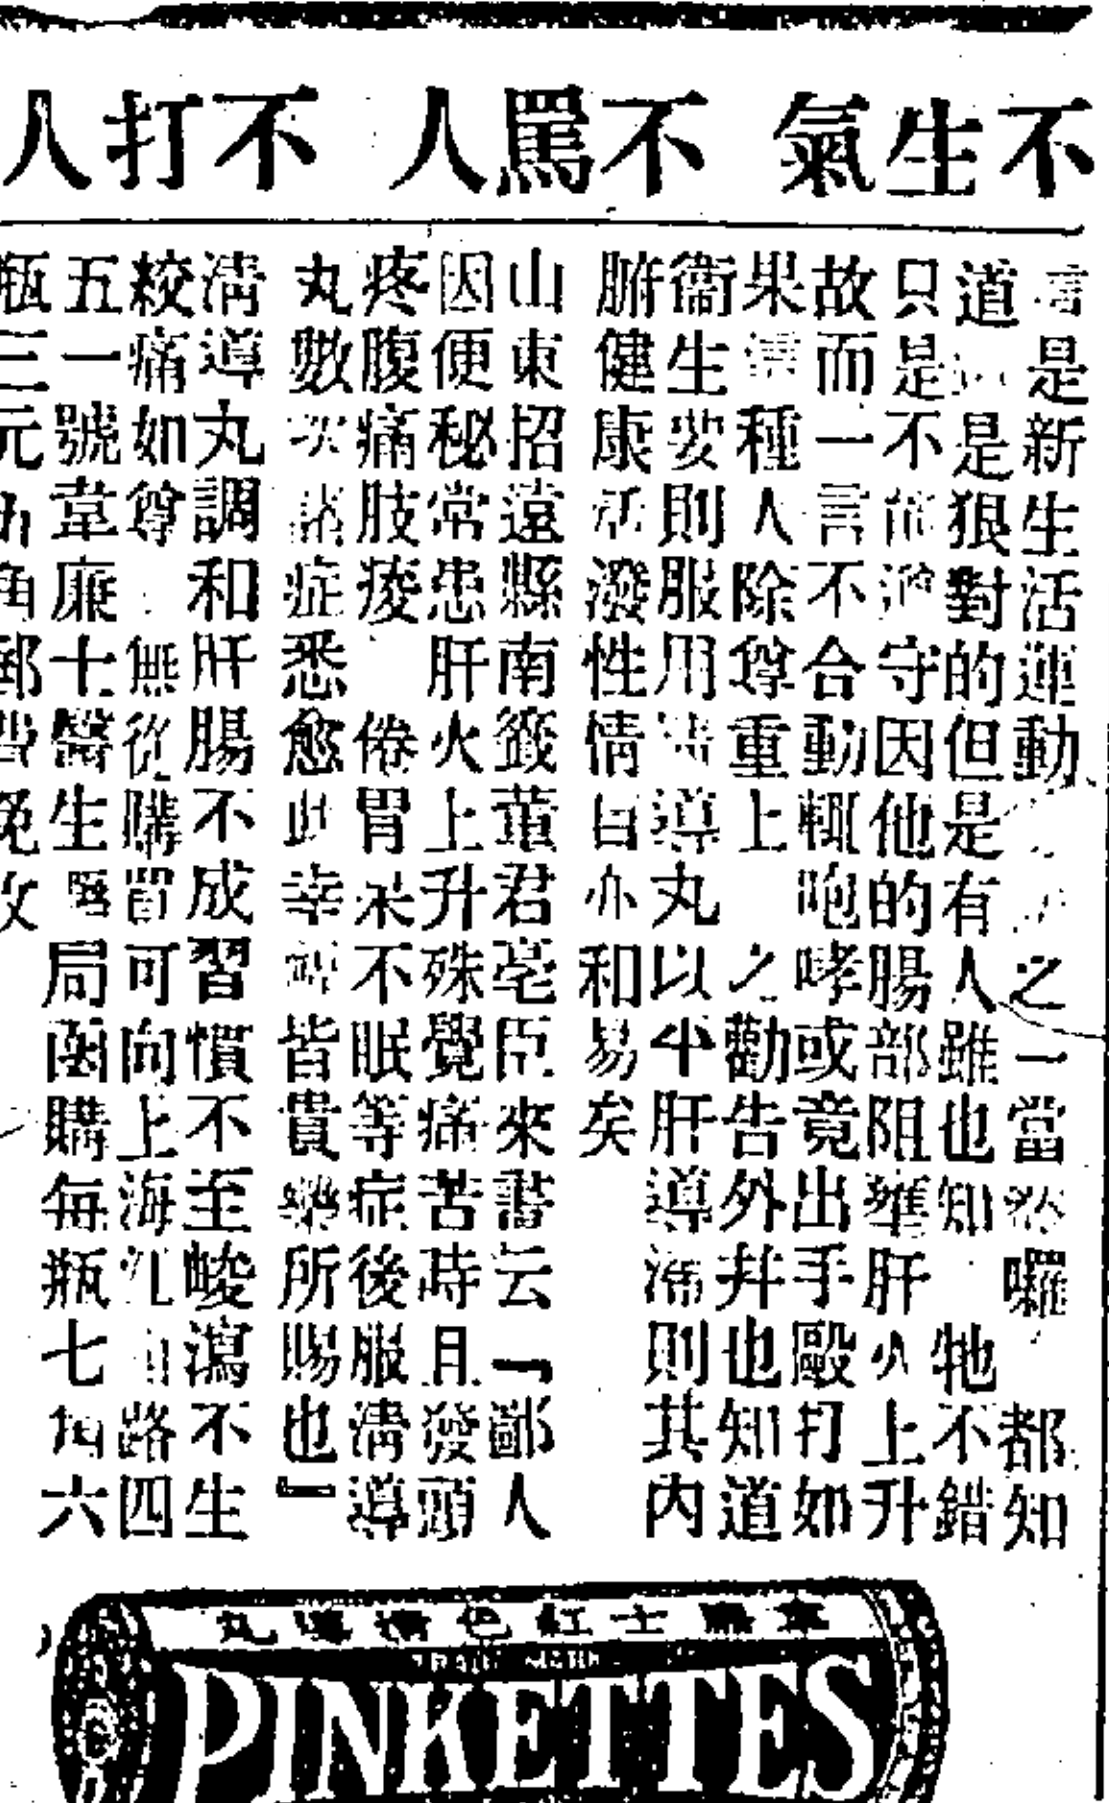 不生氣 不罵人 不打人
是新生活運動之一當然囉 都知
道 是狠對的但是有人雖也知 牠不錯
只是不能遵守因他的腸部阻壅肝火上升
故而一言不合動輒咆哮或竟出手毆打如
果 種人除尊重上 之勸告外幷也知道
衞生要則服用清導丸以平肝導滯則其內
腑健康活潑性情自亦和易矣
山東招遠縣南籤董君亳臣來書云『鄙人
因便秘常患肝火上升殊覺痛苦時且發頭
疼腹痛肢痠 倦胃呆不眠等症後服淸導
丸數次諸症悉愈此幸 皆貴藥所賜也』
淸導丸調和肝腸不成習慣不至峻瀉不生
絞痛如尊 無從購買可向上海江西路四
五一號韋廉士醫生藥局函購每瓶七角六
瓶三元 角郵費免收
韋廉士紅色清導丸
TRADE MARK
PINKETTES